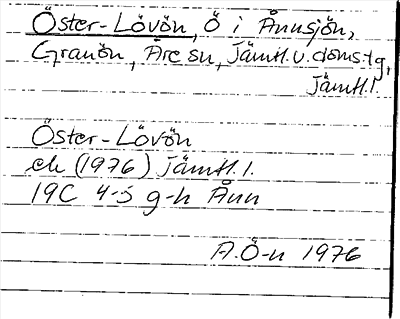 Öster-Lövön, ö i Ånnsjön,
Granön, Åre sn, Jämtl. v. doms.tg,
Jämtl. l.
Öster-Lövön
ek (1976) Jämtl. l.
19C 4-5 g-h Ånn
A.Ö-n 1976